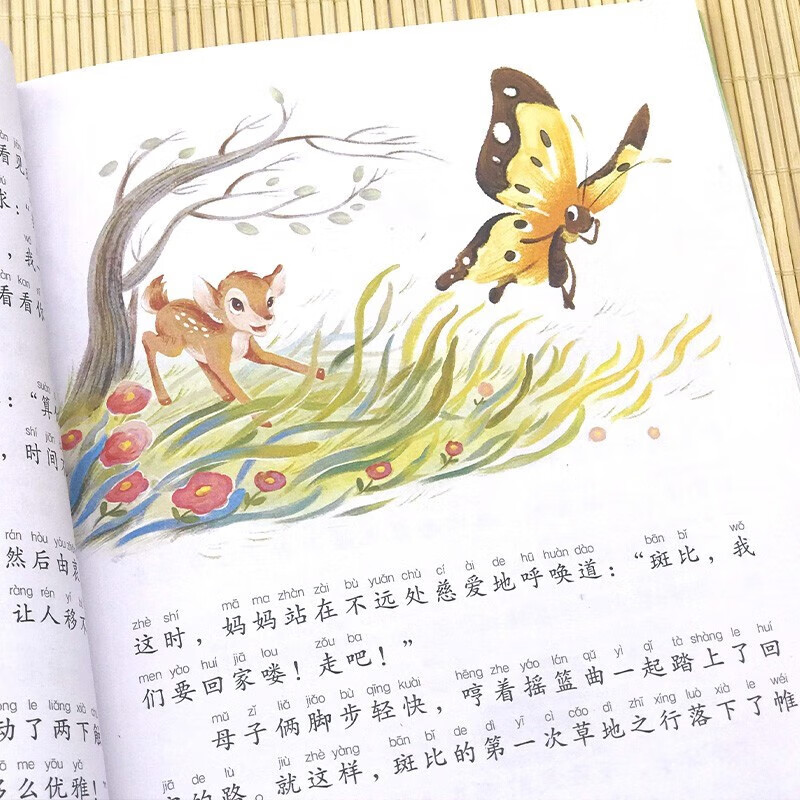 看见
球：“
wǒ
，我
kàn kan nǐ
看看你
suàn
：“算
shí jiān
，时间
rán hòu yóu
然后由衷
ràng rén yí bù
让人移不
le liǎng xià
动了两下触
me yōu yǎ
多么优雅！
zhè shí mā ma zhàn zài bù yuǎn chù cí ài de hū huàn dào bān bǐ wǒ
这时，妈妈站在不远处慈爱地呼唤道：“斑比，我
men yào huí jiā lou zǒu ba
们要回家喽！走吧！”
mǔ zǐ liǎ jiǎo bù qīng kuài hēng zhe yáo lán qǔ yì qǐ tà shàng le huí
母子俩脚步轻快，哼着摇篮曲一起踏上了回
jiā de lù jiù zhè yàng bān bǐ de dì yī cì cǎo dì zhī xíng luò xià le wéi
家的路。就这样，斑比的第一次草地之行落下了帷